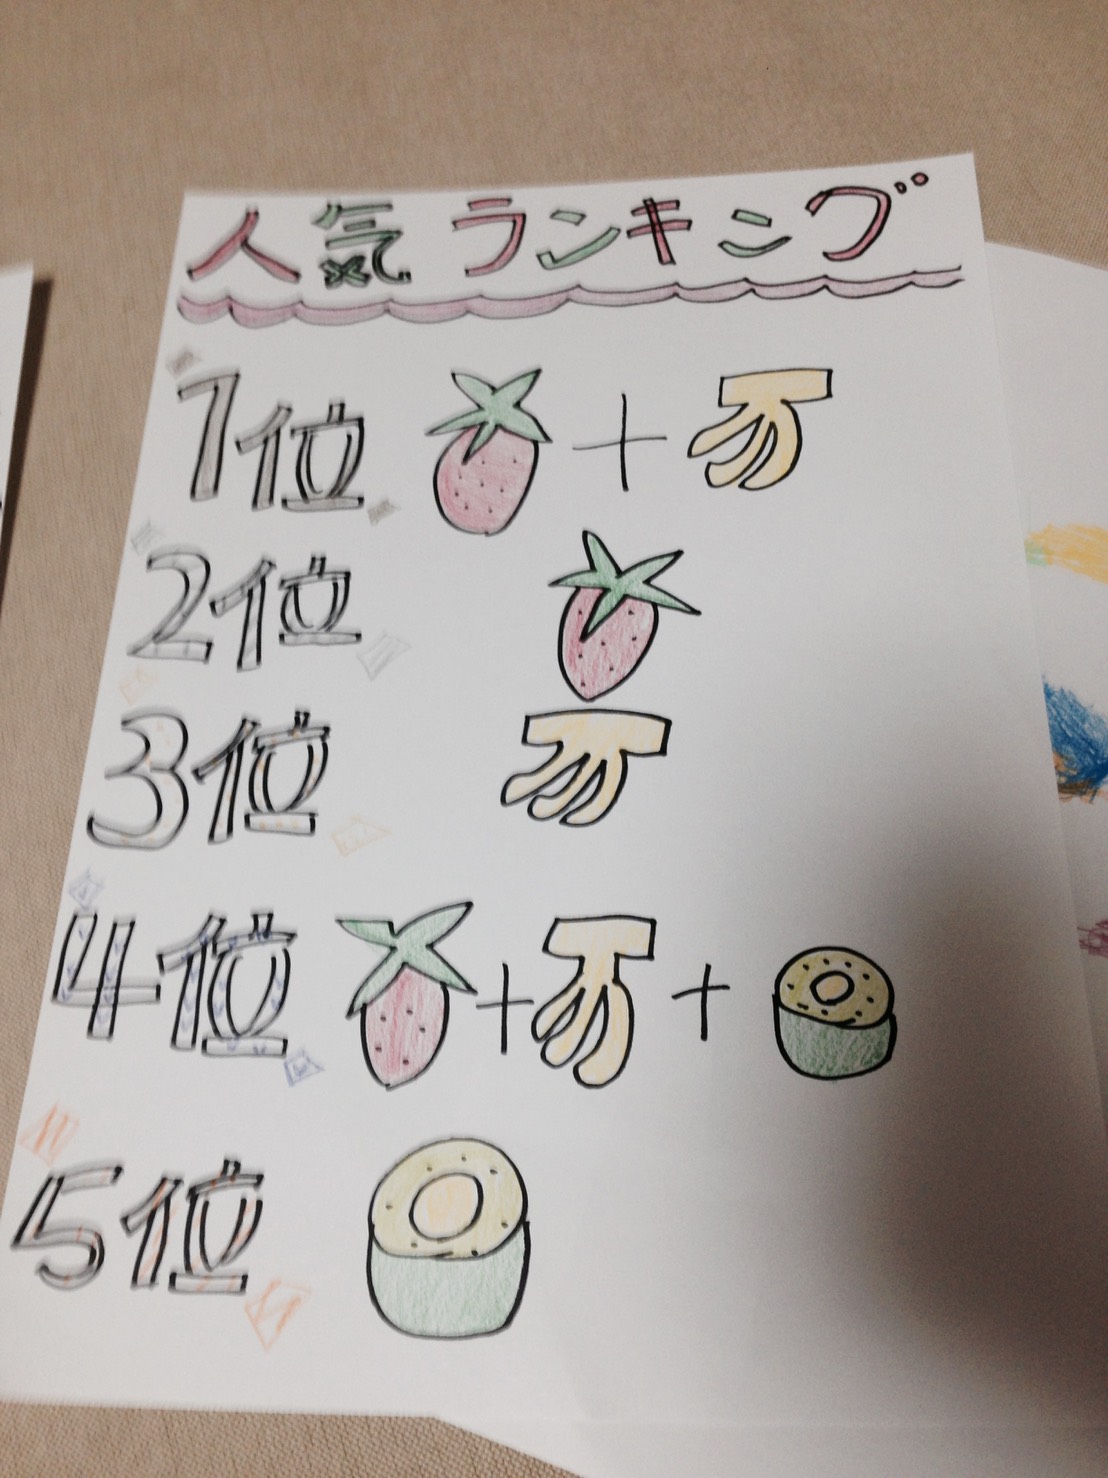 人気ランキング
1位 +
2位
3位
4位 + +
5位